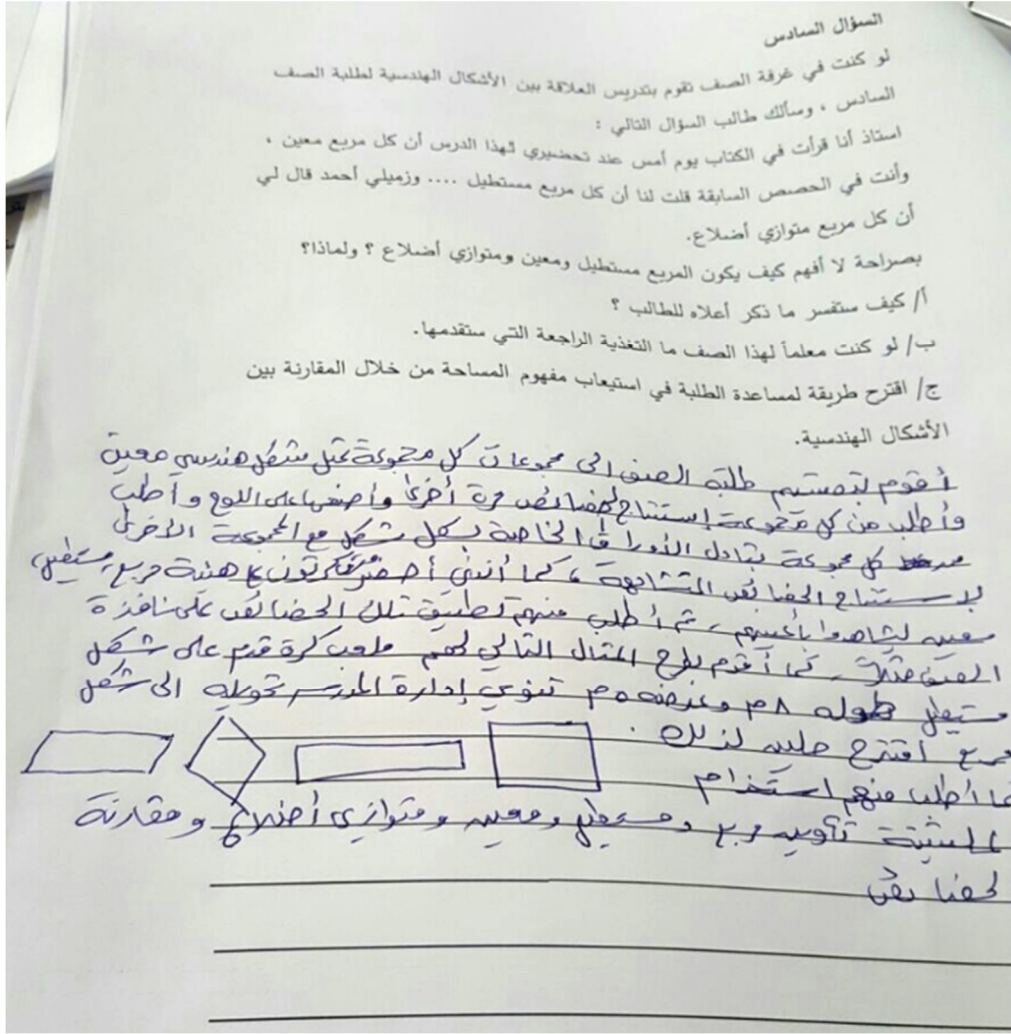 السؤال السادس
لو كنت في غرفة الصف تقوم بتدريس العلاقة بين الأشكال الهندسية لطلبة الصف
السادس ، وسألك طالب السؤال التالي :
استاذ أنا قرأت في الكتاب يوم أمس عند تحضيري لهذا الدرس أن كل مربع معين ،
وأنت في الحصص السابقة قلت لنا أن كل مربع مستطيل .... وزميلي أحمد قال لي
أن كل مربع متوازي أضلاع.
بصراحة لا أفهم كيف يكون المربع مستطيل ومعين ومتوازي أضلاع ؟ ولماذا؟
أ/ كيف ستفسر ما ذكر أعلاه للطالب ؟
ب/ لو كنت معلماً لهذا الصف ما التغذية الراجعة التي ستقدمها.
ج/ اقترح طريقة لمساعدة الطلبة في استيعاب مفهوم المساحة من خلال المقارنة بين
الأشكال الهندسية.
أقوم بتقسيم طلبة الصف الى مجموعات كل مجموعة تمثل شكل هندسي معين
وأطلب من كل مجموعة إستنتاج الخصائص مرة أخرى وأضعها على اللوح وأطلب
من كل مجموعة تبادل الأوراق الخاصة بكل شكل مع المجموعة الأخرى
لإستنتاج الخصائص المتشابهة ، كما أنني أحضر كرتون على هيئة مربع، مستطيل،
معين ليشاهدوا بأعينهم ، ثم أطلب منهم تطبيق تلك الخصائص على نافذة
الصف مثلاً . كما أقوم بطرح المثال التالي لهم ملعب كرة قدم على شكل
مستطيل طوله ٨م وعرضه ٥م تنوي إدارة المدرسة تحويله الى شكل
مربع اقترح حلين لذلك .
أطلب منهم استخدام
تكوين مربع ومستطيل ومعين ومتوازي أضلاع ومقارنة
الخصائص